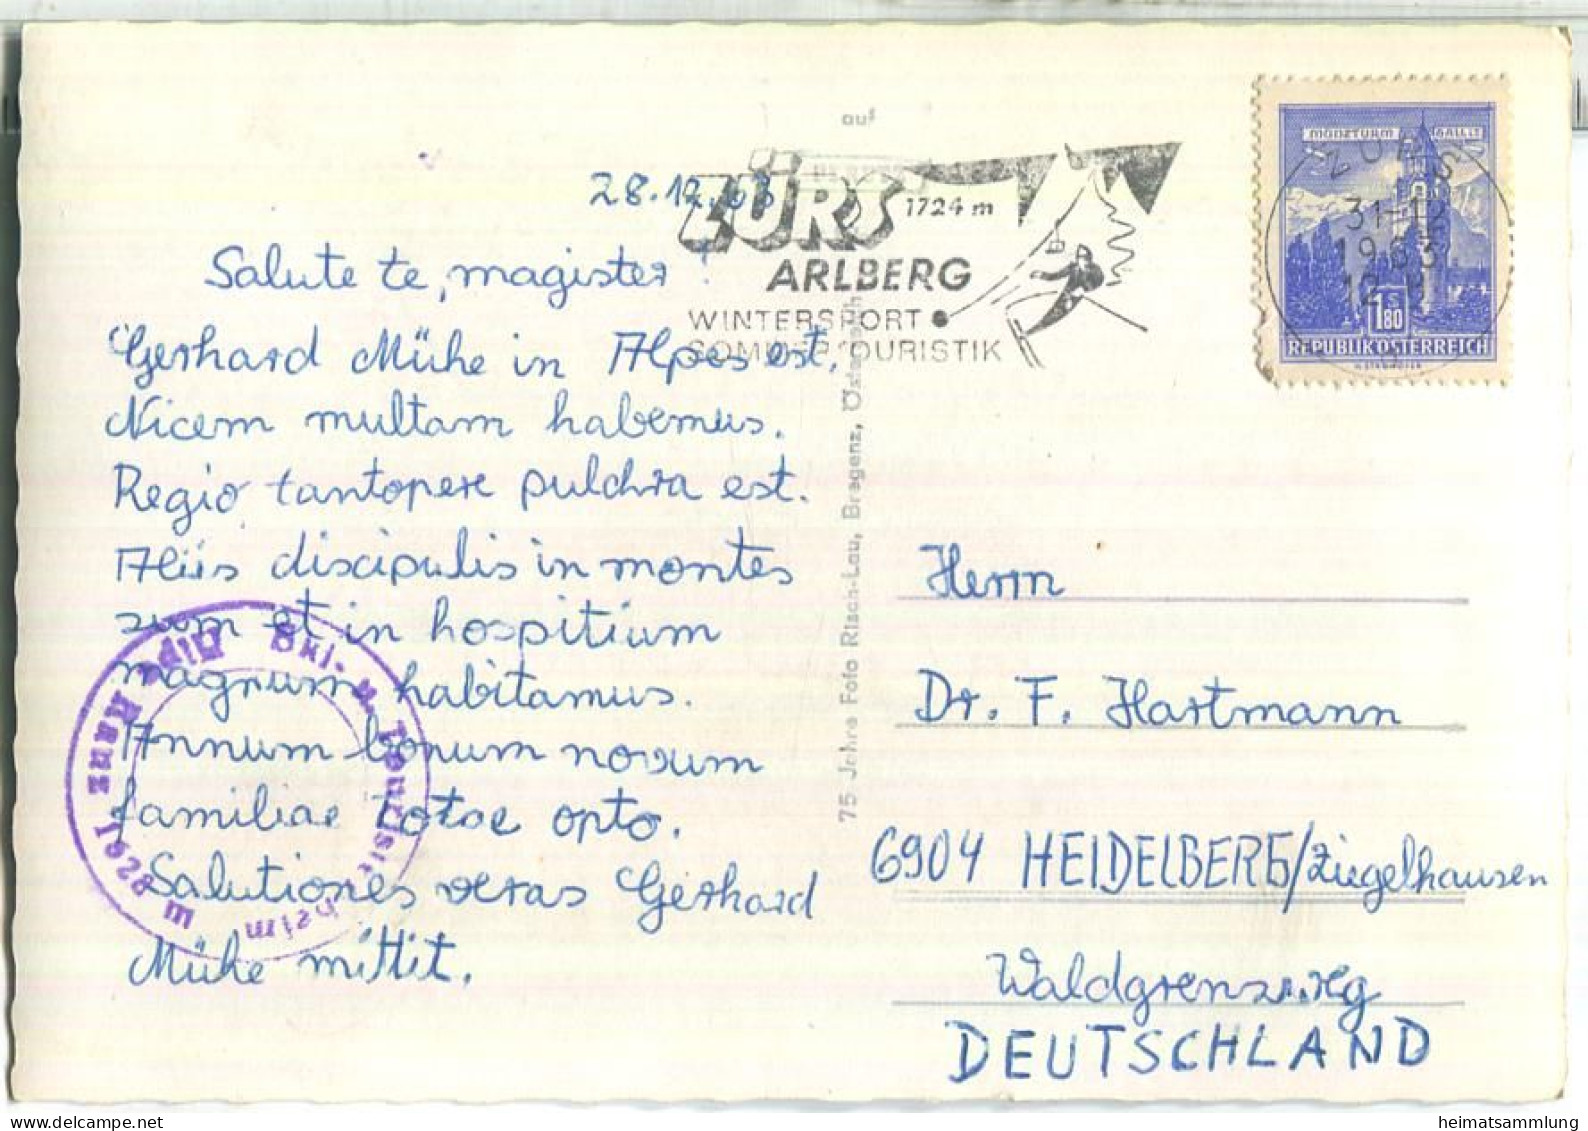 28.12.63
Salute te, magister!
Gerhard Mühe in Alpes est.
Nicem multam habemus.
Regio tantopere pulchra est.
Aliis discipulis in montes
sum et in hospitium
magnum habitamus.
Annum bonum novum
familiae totae opto.
Salutiones veras Gerhard
Mühe mittit.
aus
ZÜRS 1724 m
ARLBERG
WINTERSPORT
SOMMERTOURISTIK
75 Jahre Foto Risch-Lau, Bregenz, Österreich
MÜNZTURM HALL
ZÜRS
31-12
1963
12
1.80 S
REPUBLIK ÖSTERREICH
Herrn
Dr. F. Hartmann
6904 HEIDELBERG/Ziegelhausen
Waldgrenzweg
DEUTSCHLAND
Ski- u. Tourist
heim
1628 m
heimatsammlung